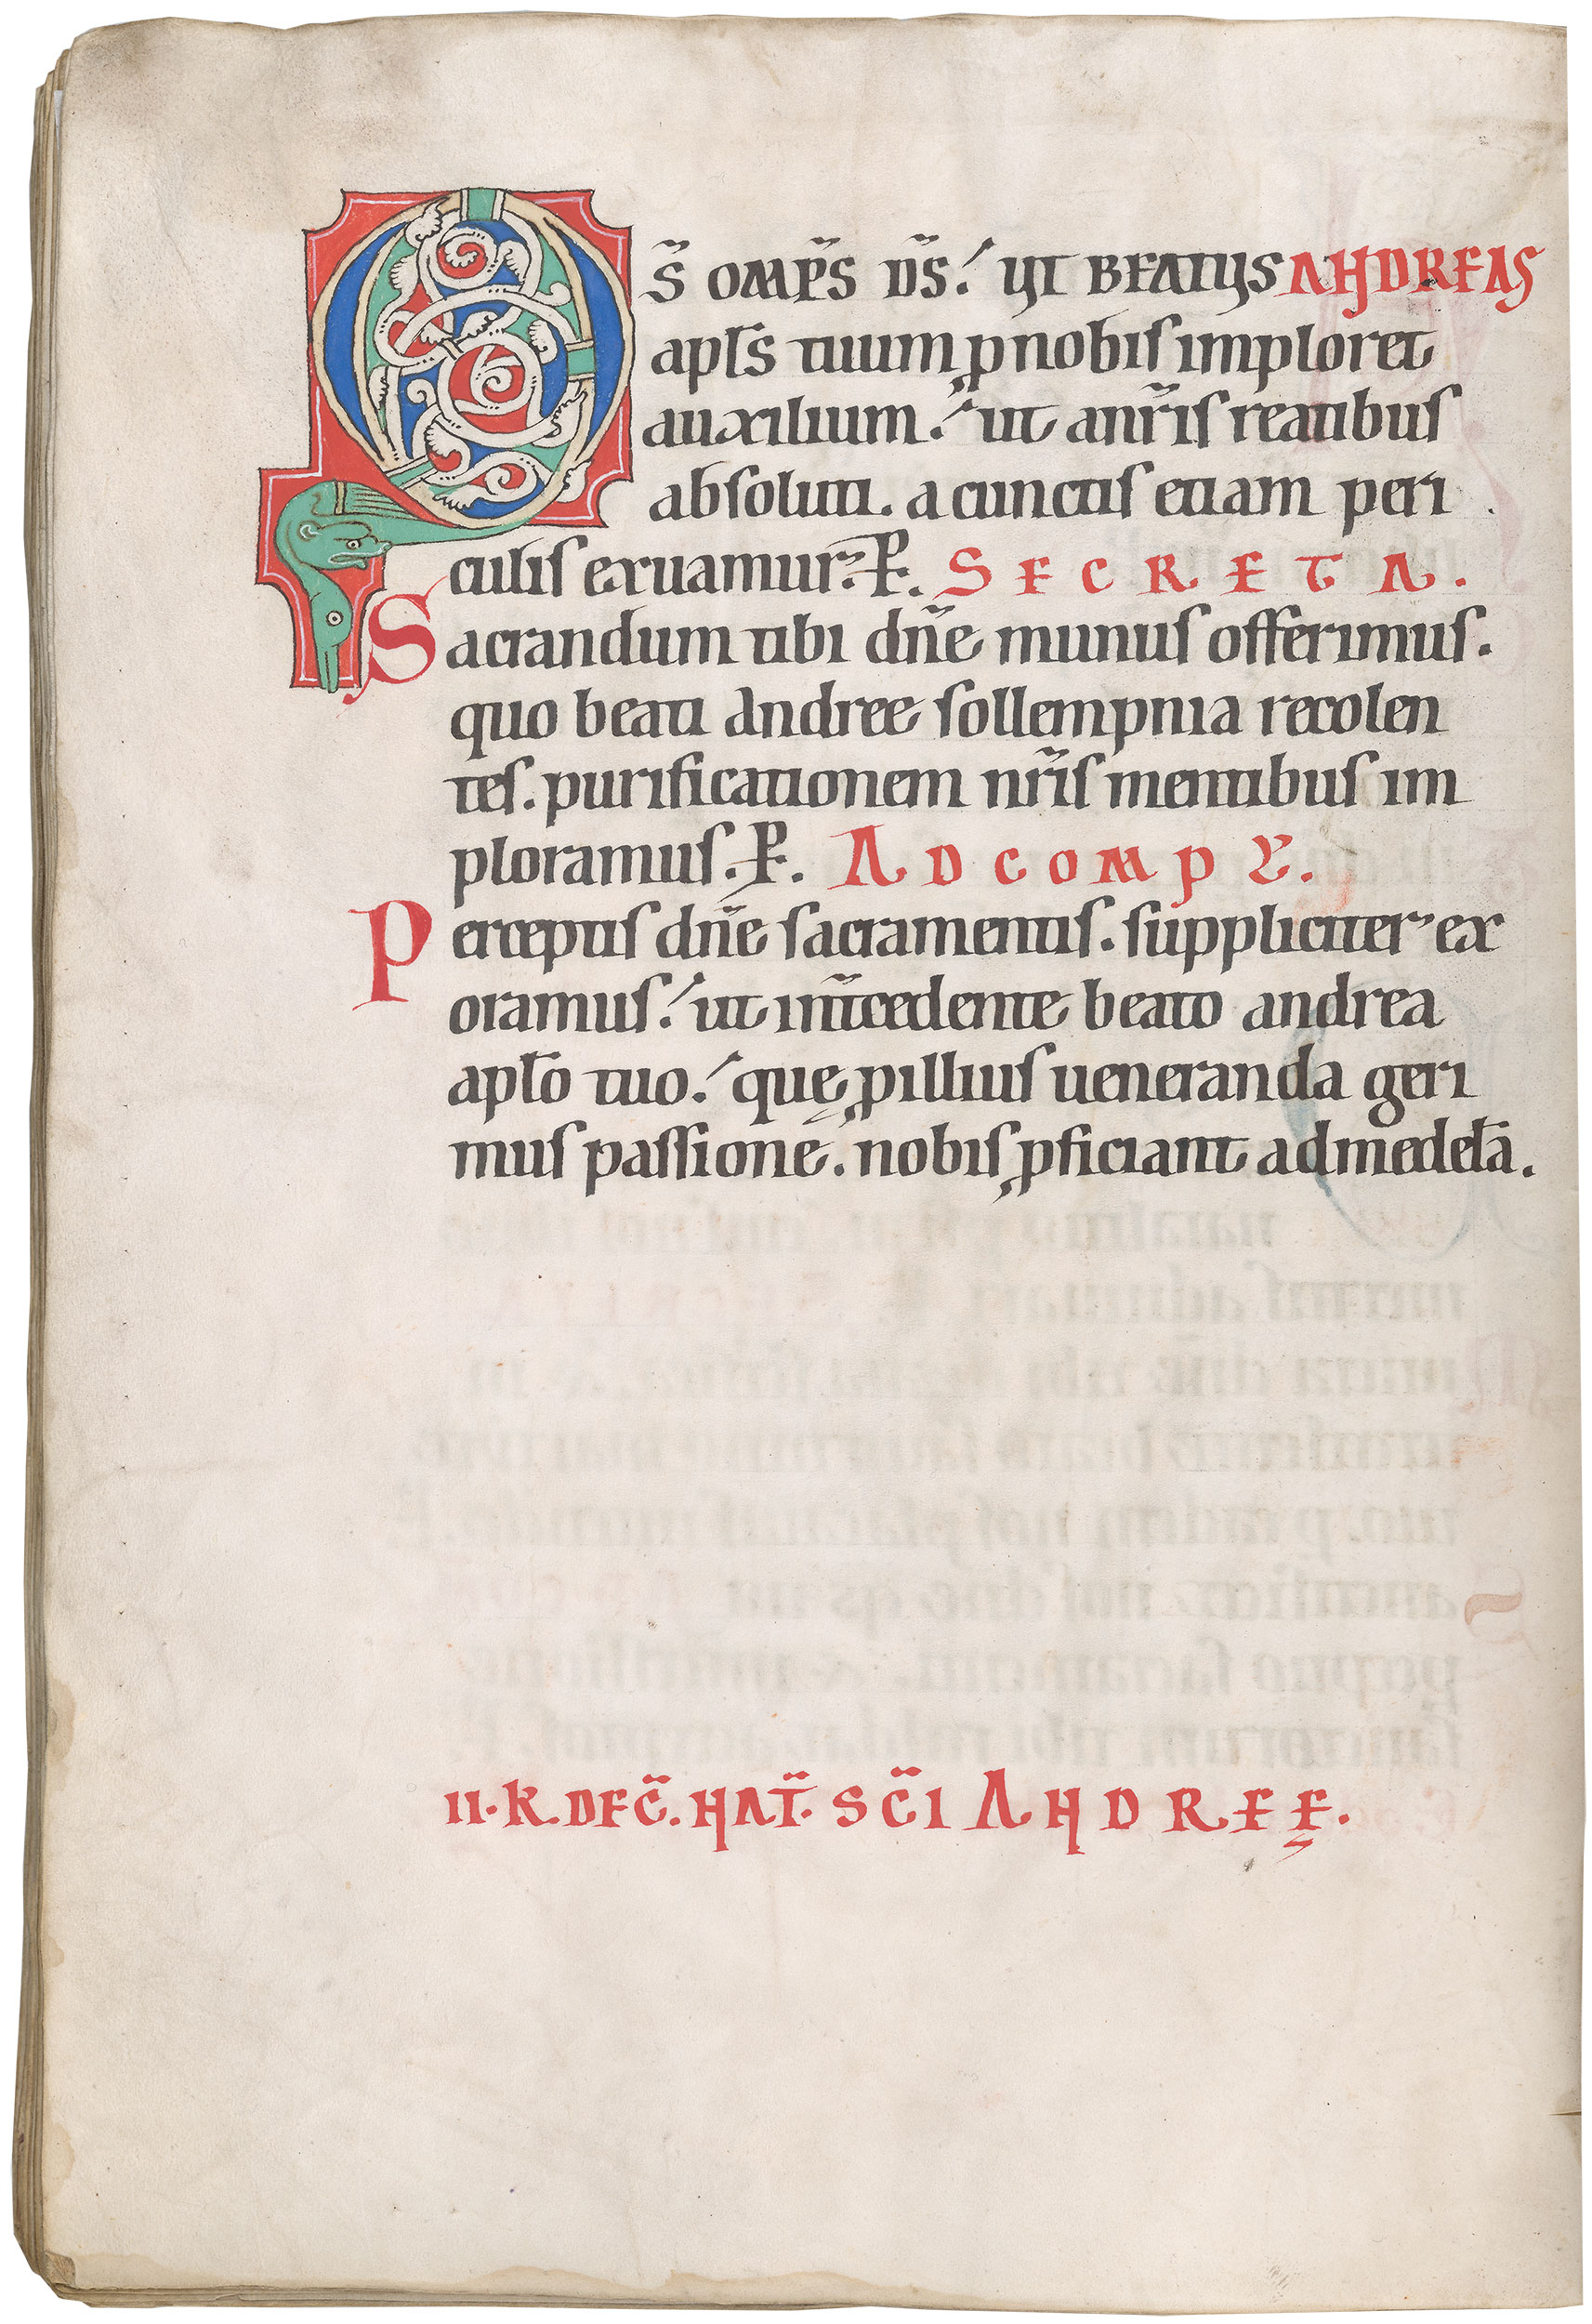 Qs̃ omp̃s ds̃. ut beatus ANDREAS
apl̃s tuum ꝓ nobis imploret
auxilium. ut a nr̃is reatibus
absoluti. a cunctis etiam peri
culis exuamur. P̱. SECRETA.
Sacrandum tibi dñe munus offerimus.
quo beati andree sollempnia recolen
tes. purificationem nr̃is mentibus im
ploramus. P̱. AD COMPꝆ.
Perceptis dñe sacramentis. suppliciter ex
oramus. ut int̃cedente beato andrea
apl̃o tuo. que ꝓ illius ueneranda geri
mus passione. nobis ꝓficiant ad medel̃ã.
II. K. DEC̃. NAT̃. SC̃I ANDREĘ.